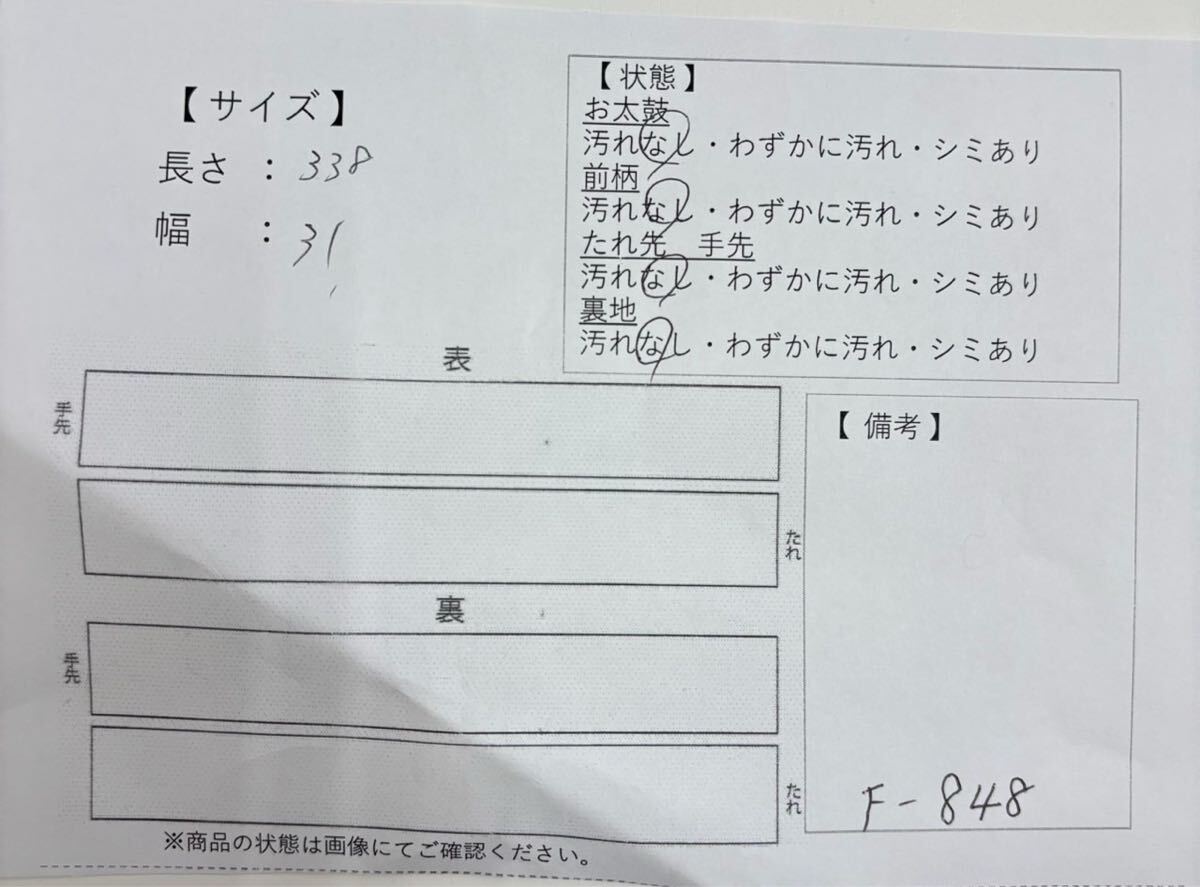 【 サイズ 】
長さ ： 338
幅 ： 31
【 状態 】
お太鼓
汚れなし・わずかに汚れ・シミあり
前柄
汚れなし・わずかに汚れ・シミあり
たれ先 手先
汚れなし・わずかに汚れ・シミあり
裏地
汚れなし・わずかに汚れ・シミあり
表
手先
たれ
裏
手先
たれ
※商品の状態は画像にてご確認ください。
【 備考 】
F-848